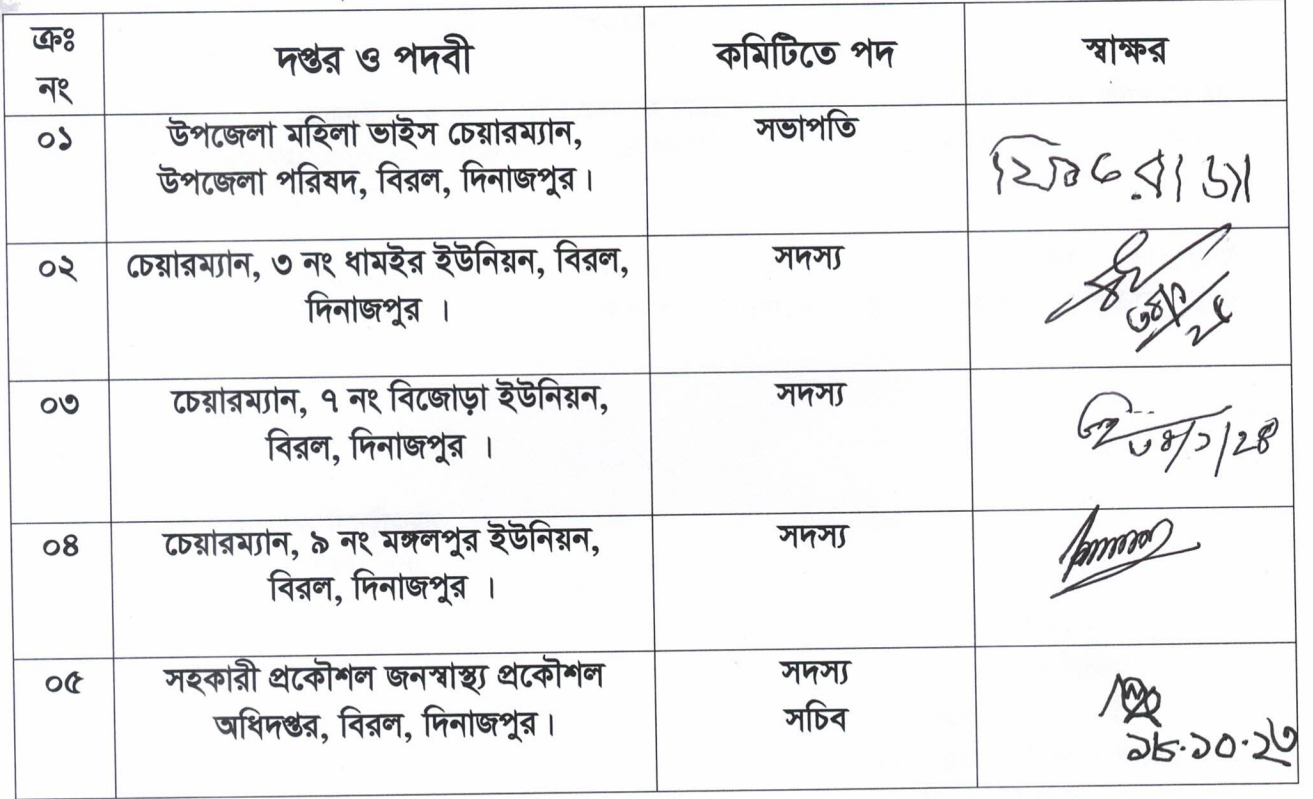 ক্রঃ নং দপ্তর ও পদবী কমিটিতে পদ স্বাক্ষর
০১ উপজেলা মহিলা ভাইস চেয়ারম্যান, সভাপতি
উপজেলা পরিষদ, বিরল, দিনাজপুর।
০২ চেয়ারম্যান, ৩ নং ধামইর ইউনিয়ন, বিরল, সদস্য
দিনাজপুর ।
০৩ চেয়ারম্যান, ৭ নং বিজোড়া ইউনিয়ন, সদস্য
বিরল, দিনাজপুর ।
০৪ চেয়ারম্যান, ৯ নং মঙ্গলপুর ইউনিয়ন, সদস্য
বিরল, দিনাজপুর ।
০৫ সহকারী প্রকৌশল জনস্বাস্থ্য প্রকৌশল সদস্য
অধিদপ্তর, বিরল, দিনাজপুর। সচিব
১৮.১০.২৩